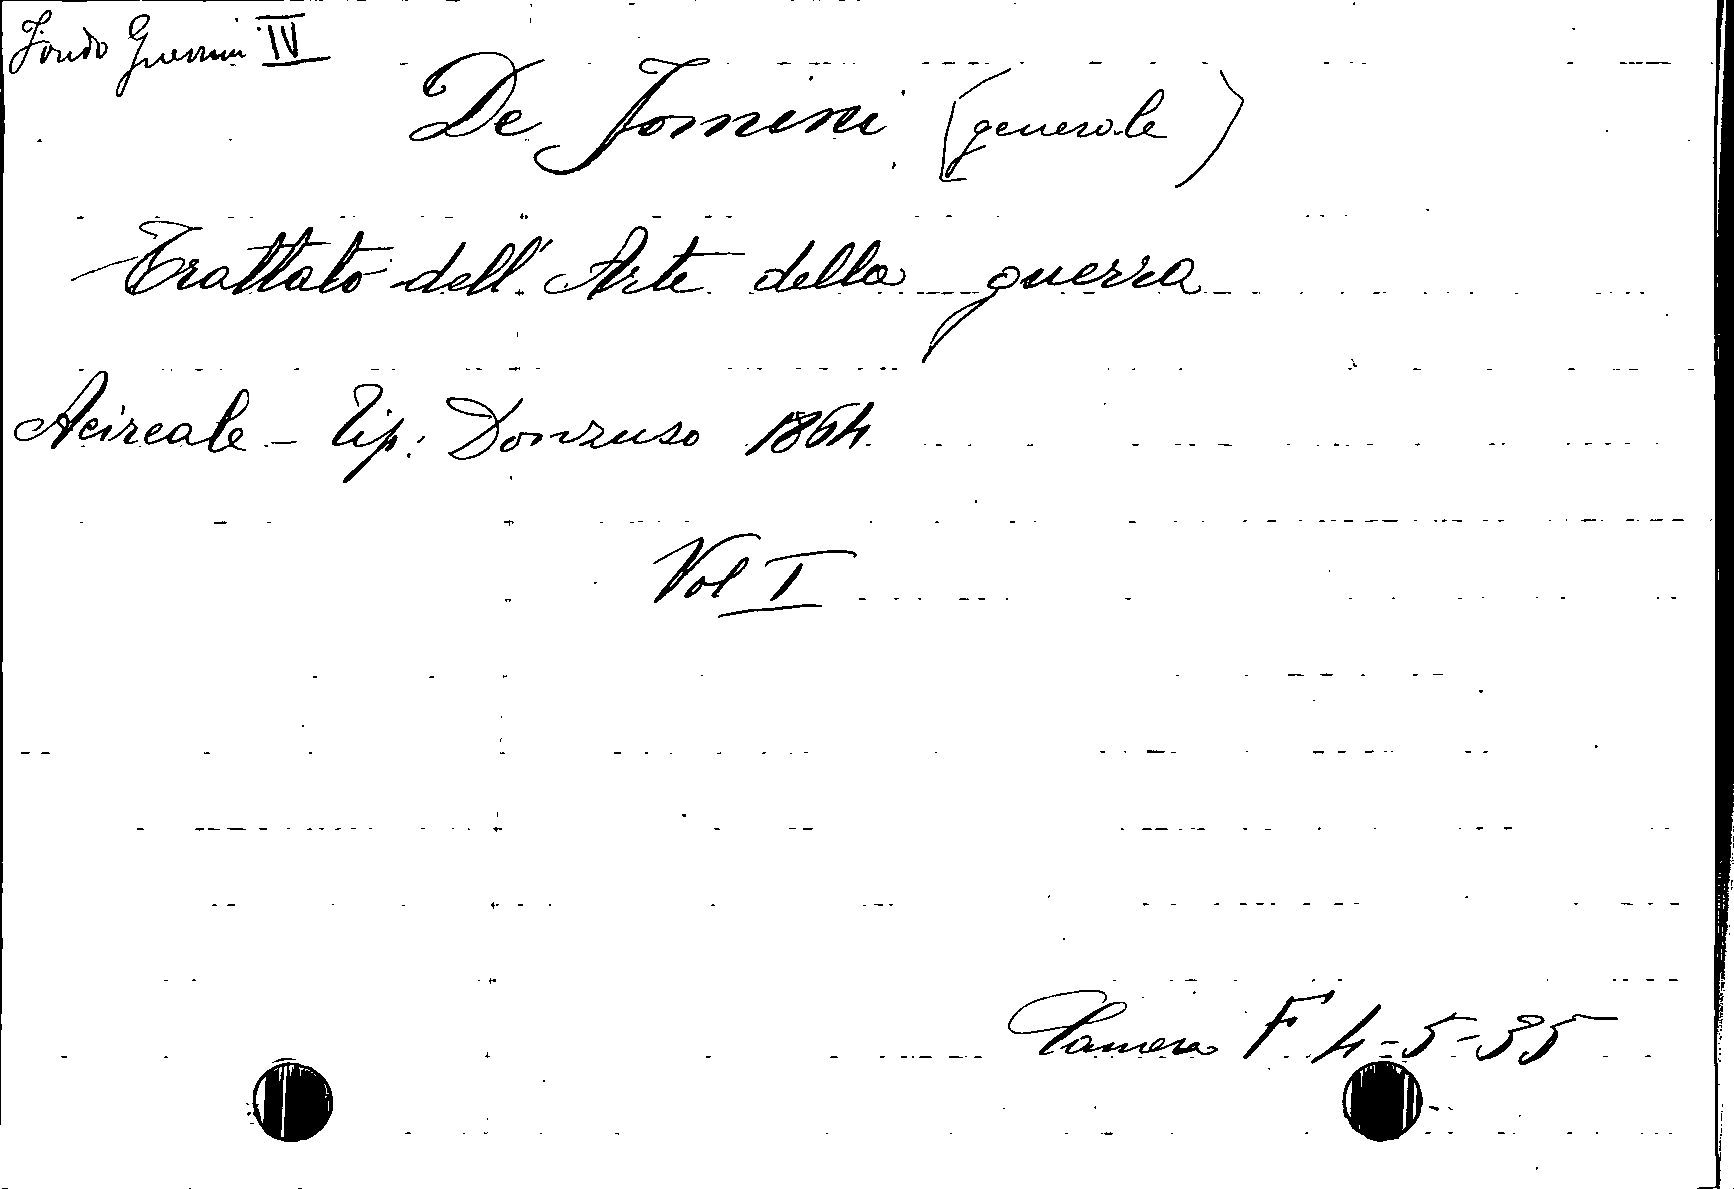 Fondo Guerrini IV
De Jomini (generale)
Trattato dell'Arte della guerra
Acireale - Tip. Donzuso 1864
Vol I
Camera F 4-5-35